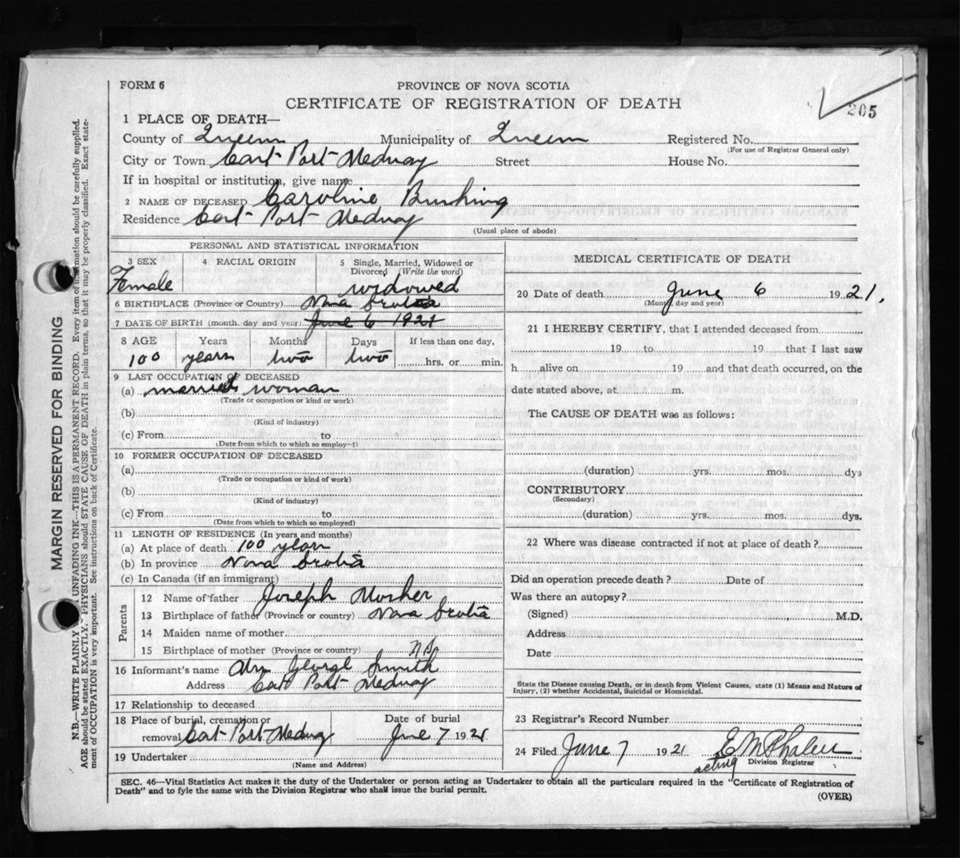 FORM 6
PROVINCE OF NOVA SCOTIA
CERTIFICATE OF REGISTRATION OF DEATH
205
1 PLACE OF DEATH—
County of Queens Municipality of Queens Registered No.
(For use of Registrar General only)
City or Town East Port Medway Street House No.
If in hospital or institution, give name
2 NAME OF DECEASED Caroline
Residence East Port Medway
(Usual place of abode)
PERSONAL AND STATISTICAL INFORMATION
3 SEX 4 RACIAL ORIGIN 5 Single, Married, Widowed or Divorced (Write the word)
Female widowed
6 BIRTHPLACE (Province or Country) Nova Scotia
7 DATE OF BIRTH (month, day and year) June 6 1921
8 AGE Years Months Days If less than one day,
100 years two two hrs. or min.
9 LAST OCCUPATION OF DECEASED
(a) married woman
(Trade or occupation or kind or work)
(b)
(Kind of industry)
(c) From to
(Date from which to which so employed)
10 FORMER OCCUPATION OF DECEASED
(a)
(Trade or occupation or kind of work)
(b)
(Kind of industry)
(c) From to
(Date from which to which so employed)
11 LENGTH OF RESIDENCE (In years and months)
(a) At place of death 100 years
(b) In province Nova Scotia
(c) In Canada (if an immigrant)
Parents
12 Name of father Joseph Mosher
13 Birthplace of father (Province or country) Nova Scotia
14 Maiden name of mother
15 Birthplace of mother (Province or country) N.S.
16 Informant's name George Smith
Address East Port Medway
17 Relationship to deceased
18 Place of burial, cremation or removal East Port Medway Date of burial June 7 1921
19 Undertaker
(Name and Address)
MEDICAL CERTIFICATE OF DEATH
20 Date of death June 6 1921.
(Month, day and year)
21 I HEREBY CERTIFY, that I attended deceased from
19 to 19 that I last saw
h alive on 19 and that death occurred, on the
date stated above, at m.
The CAUSE OF DEATH was as follows:
(duration) yrs. mos. dys
CONTRIBUTORY
(Secondary)
(duration) yrs. mos. dys.
22 Where was disease contracted if not at place of death?
Did an operation precede death? Date of
Was there an autopsy?
(Signed) M.D.
Address
Date
State the Disease causing Death, or in death from Violent Causes, state (1) Means and Nature of
Injury, (2) whether Accidental, Suicidal or Homicidal.
23 Registrar's Record Number
24 Filed June 7 1921
acting Division Registrar
SEC. 46—Vital Statistics Act makes it the duty of the Undertaker or person acting as Undertaker to obtain all the particulars required in the "Certificate of Registration of
Death" and to fyle the same with the Division Registrar who shall issue the burial permit.
(OVER)
MARGIN RESERVED FOR BINDING
N.B.—WRITE PLAINLY UNFADING INK—THIS IS A PERMANENT RECORD. Every item of information should be carefully supplied.
AGE should be stated EXACTLY. PHYSICIANS should STATE CAUSE OF DEATH in plain terms, so that it may be properly classified. Exact state-
ment of OCCUPATION is very important. See instructions on back of Certificate.